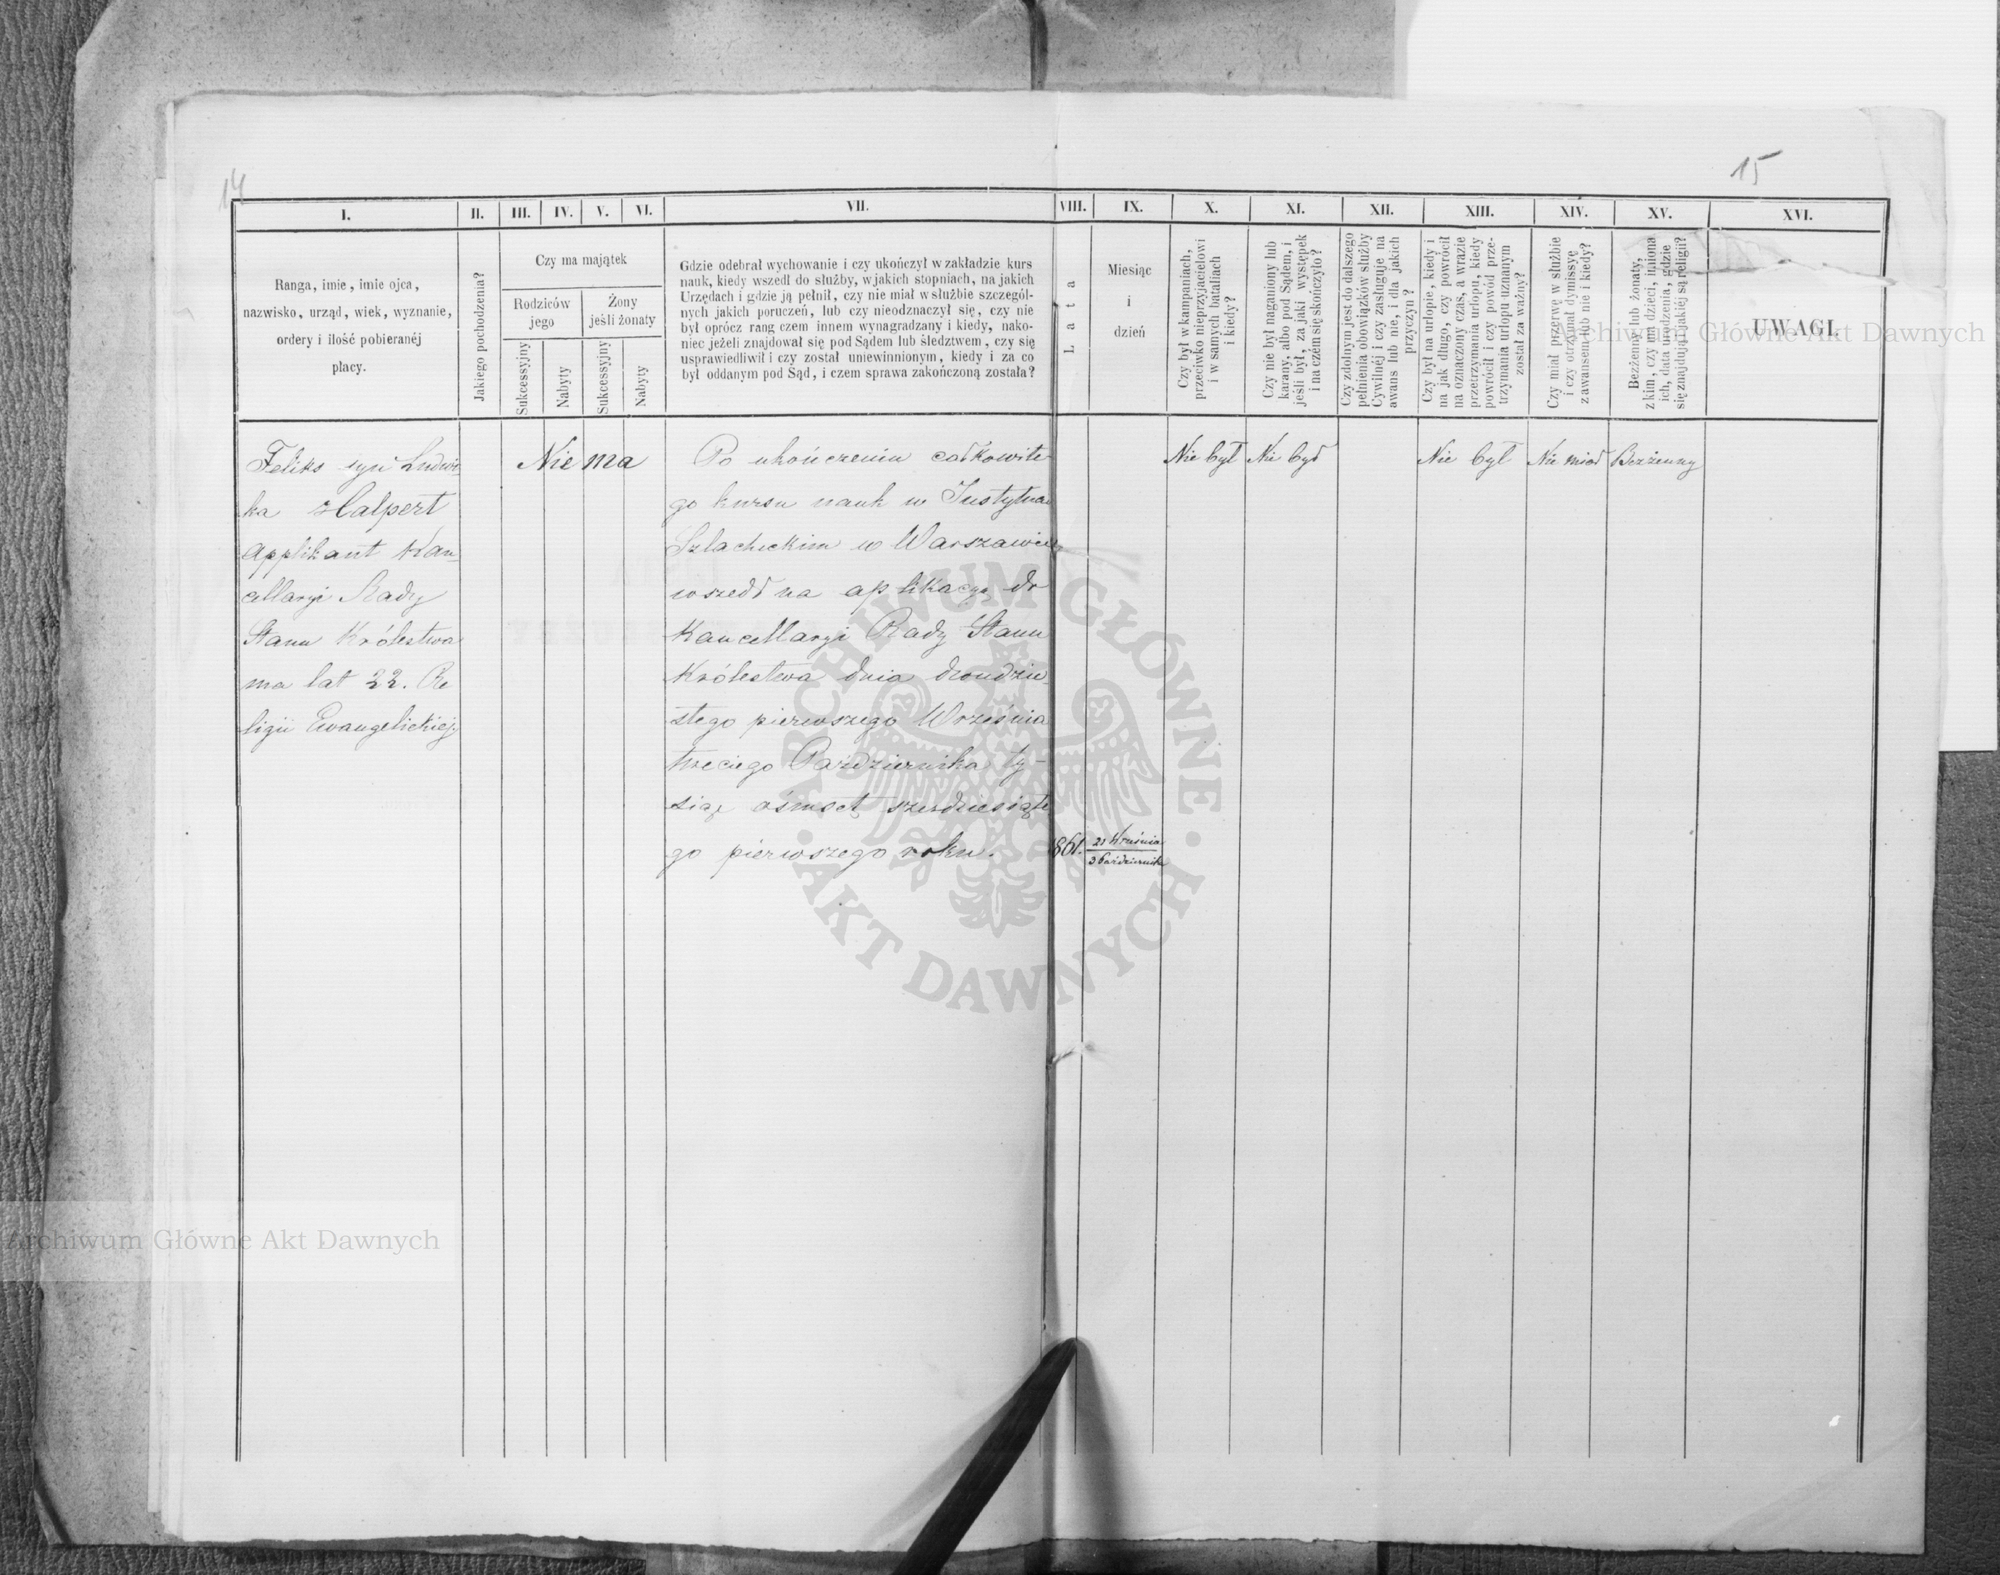 14
15
I.
II.
III.
IV.
V.
VI.
VII.
VIII.
IX.
X.
XI.
XII.
XIII.
XIV.
XV.
XVI.
Ranga, imie, imie ojca,
nazwisko, urząd, wiek, wyznanie,
ordery i ilość pobieranéj
płacy.
Jakiego pochodzenia?
Czy ma majątek
Rodziców
jego
Żony
jeśli żonaty
Sukcessyjny
Nabyty
Sukcessyjny
Nabyty
Gdzie odebrał wychowanie i czy ukończył w zakładzie kurs
nauk, kiedy wszedł do służby, w jakich stopniach, na jakich
Urzędach i gdzie ją pełnił, czy nie miał w służbie szczegól-
nych jakich poruczeń, lub czy nieodznaczył się, czy nie
był oprócz rang czem innem wynagradzany i kiedy, nako-
niec jeżeli znajdował się pod Sądem lub śledztwem, czy się
usprawiedliwił i czy został uniewinnionym, kiedy i za co
był oddanym pod Sąd, i czem sprawa zakończoną została?
Lata
Miesiąc
i
dzień
Czy był w kampaniach,
przeciwko nieprzyjacielowi
i w samych bataliach
i kiedy?
Czy nie był naganiony lub
karany, albo pod Sądem, i
jeśli był, za jaki występek
i na czem się skończyło?
Czy zdolnym jest do dalszego
pełnienia obowiązków służby
Cywilnéj i czy zasługuje na
awans lub nie, i dla jakich
przyczyn?
Czy był na urlopie, kiedy i
na jak długo, czy powrócił
na oznaczony czas, a wrazie
przetrzymania urlopu, kiedy
powrócił i czy powód prze-
trzymania urlopu uznanym
został za ważny?
Czy miał przerwę w służbie
i czy otrzymał dymissyę
z awansem lub nie i kiedy?
Bezżenny lub żonaty,
z kim, czy ma dzieci, imiona
ich, data urodzenia, gdzie
się znajdują i jakiéj są religii?
UWAGI.
Feliks syn Ludwi-
ka Halpert
Applikant Kan-
cellaryi Rady
Stanu Królestwa
ma lat 22. Re
ligii Ewangelickiej
Nie ma
Po ukończeniu całkowite-
go kursu nauk w Instytucie
Szlacheckim w Warszawie
wszedł na aplikacyą do
Kancellaryi Rady Stanu
Królestwa dnia dwudzie-
stego pierwszego Września
trzeciego Października ty-
siąc ośmset sześdziesiąte
go pierwszego roku.
1861.
21 Września
3 Października
Nie był
Nie był
Nie był
Nie miał
Bezżenny
ARCHIWUM GŁÓWNE
AKT DAWNYCH
Archiwum Główne Akt Dawnych
Archiwum Główne Akt Dawnych